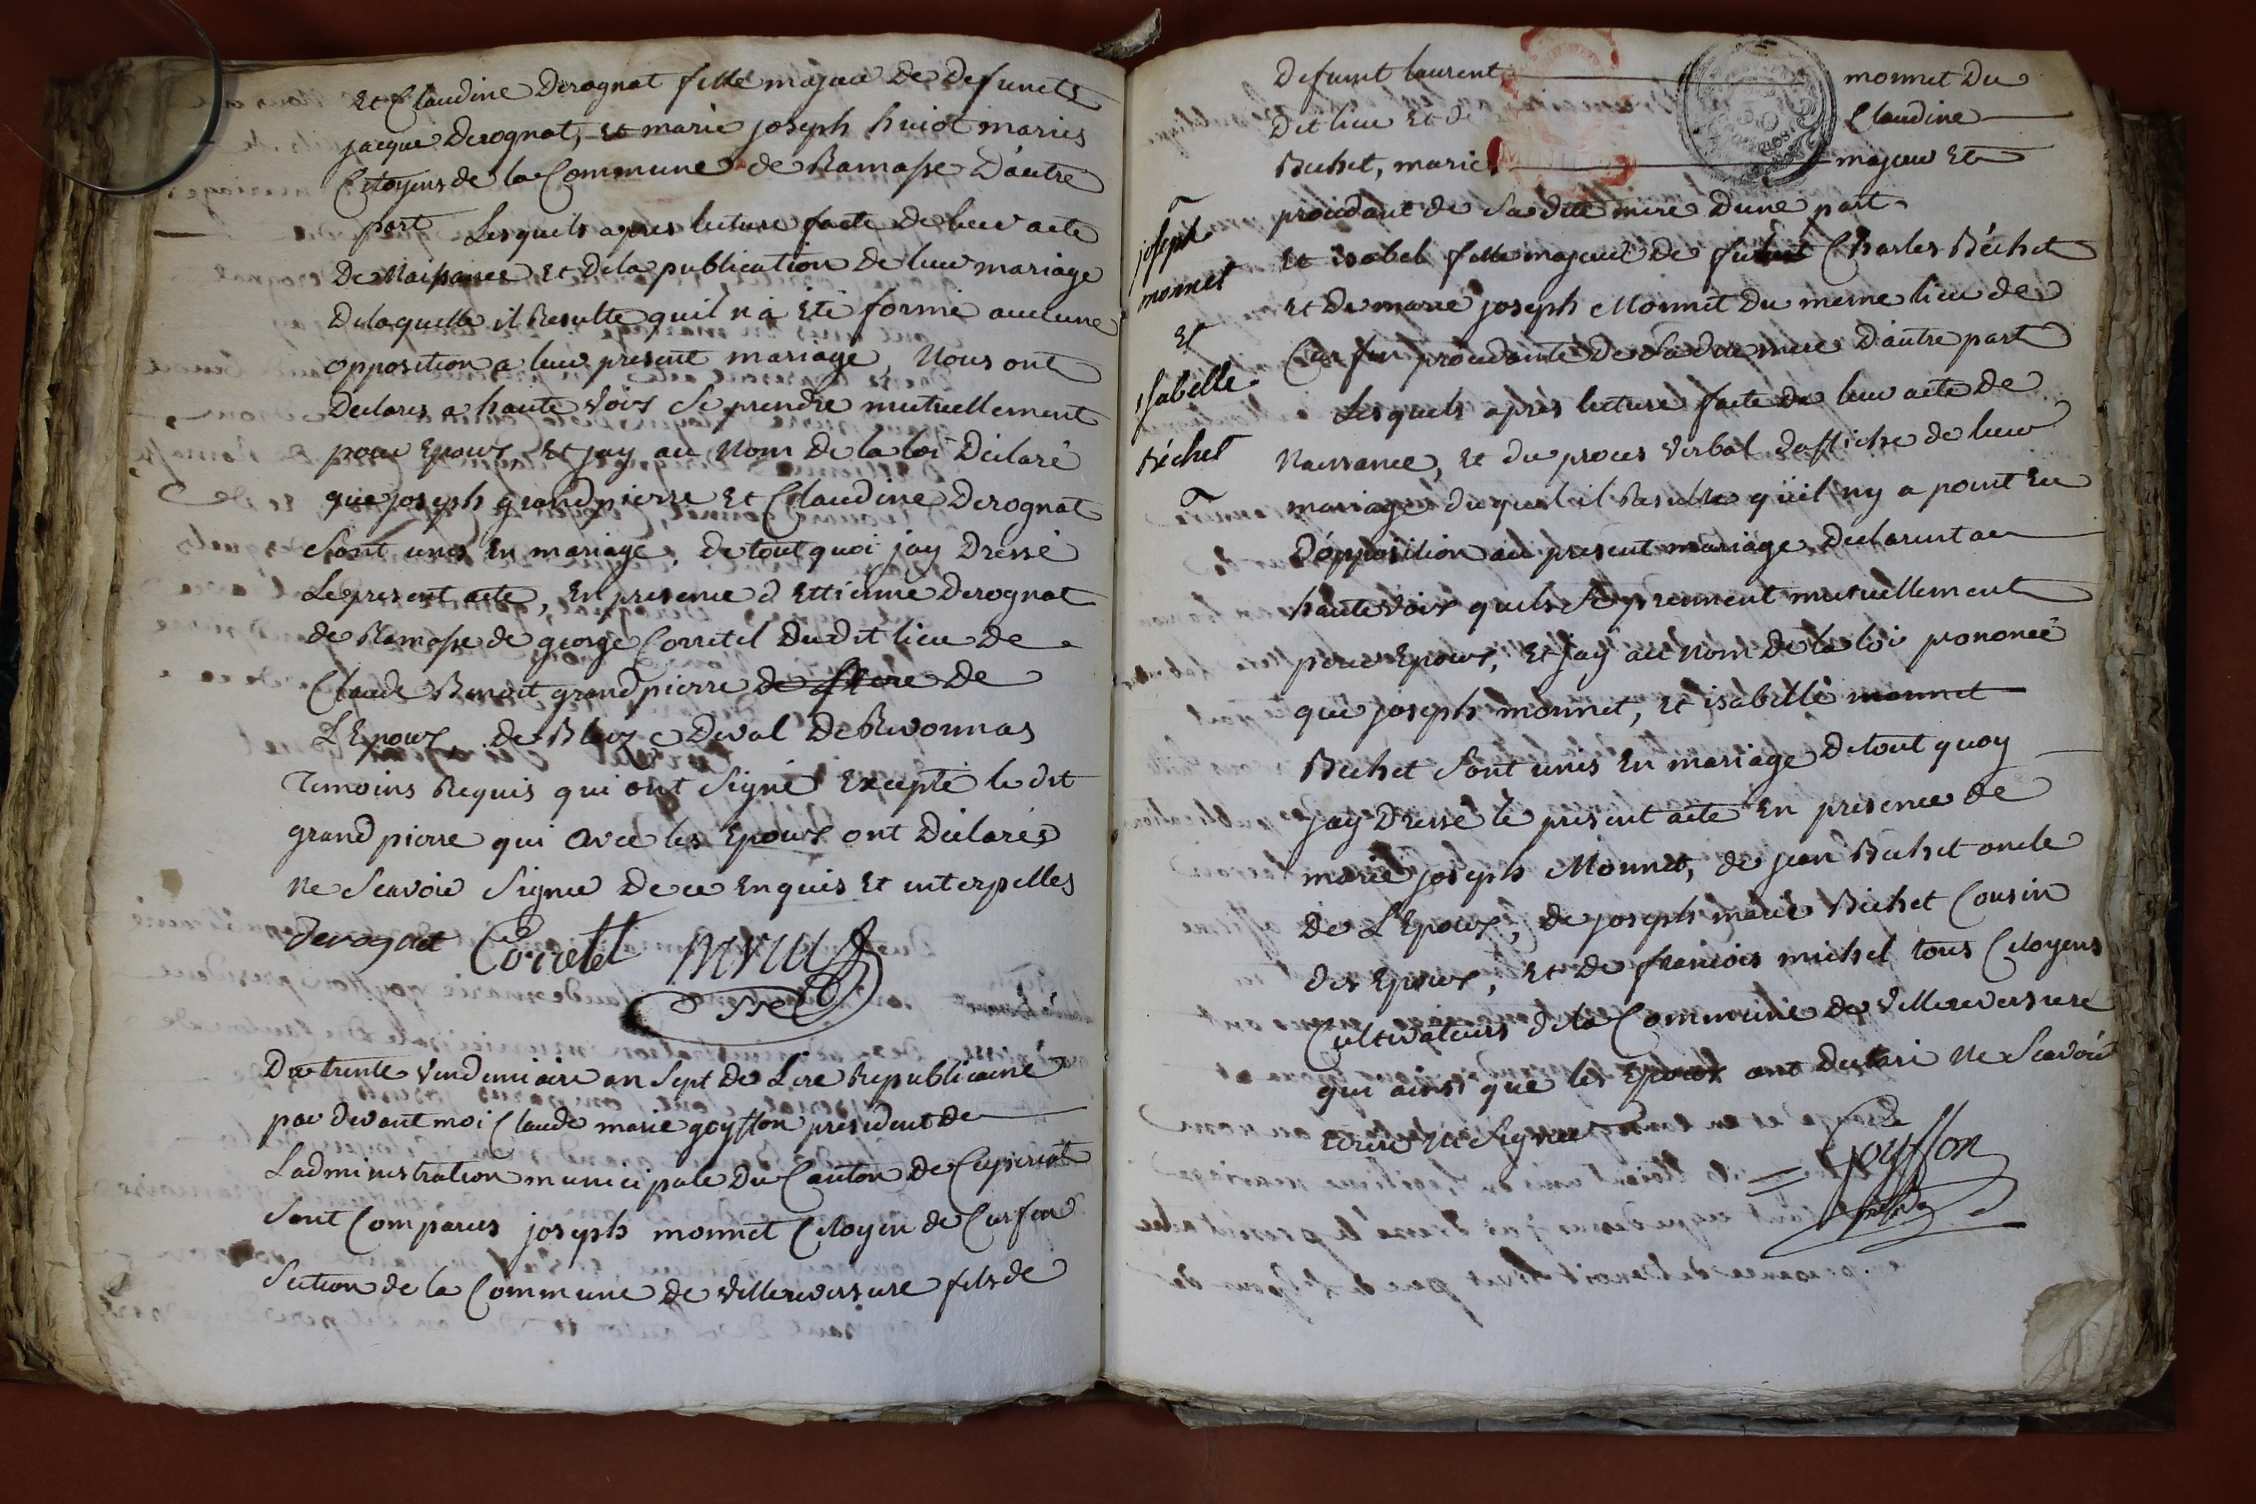 Et Claudine Derognat fille majeur De Defuncts
jacque Derognat, et marie joseph huiot maries
Citoyens de la Commune de Ramasse D'autre
part Lesquels apres lecture faite de leur acte
De Naissance Et De la publication de leur mariage
Delaquelle il Resulte quil n'a Eté formé aucune
opposition a leur present mariage, Nous ont
Declarés a haute voix Se prendre mutuellement
pour Epoux Et jay au Nom De la loi Déclaré
que joseph grandpierre Et Claudine Derognat
Sont unis En mariage, de tout quoi jay Dressé
Le present acte, En presence d Ettienne Derognat
de Ramasse de george Corretel Dudit lieu De
Claude Benoit grandpierre de frere De
L'Epoux, de Blaize Deval De Revonnas
Temoins Requis qui ont Signé Excepté le dit
grandpierre qui avec les Epoux ont Déclarés
Ne Scavoir Signer De ce Enquis Et interpellés
derognat
Du trente Vendemiaire an Sept de Lere Republicaine
par devant moi Claude marie goyffon president de
Ladministration municipale Du Canton De Ceyseriat
Sont Comparus joseph monnet Citoyen de Curfin
Section de la Commune de Villereversure fils de
Defunt laurent monnet Du
Dit lieu Et De Claudine
Bechet, maries majeur Et
procedant de Sa dite mere D'une part
joseph
monnet
Et
isabelle
Béchet
Et isabel fille majeur de Charles Béchet
Et De marie joseph Monnet Du meme lieu de
Curfin procedante De Sa dite mere D'autre part
Lesquels apres lecture faite de leur acte de
Naissance, Et du proces Verbal d'affiche de leur
mariage duquel il Resulte quil ny a point Eu
D'opposition au present mariage, Declarent au
haute voix quils Se prennent mutuellement
pour Epoux, Et jay au Nom De la loi prononcé
que joseph monnet, Et isabelle monnet
Bechet Sont unis En mariage De tout quoy
jay Dressé le present acte En presence de
marie joseph Monnet, de jean Bechet oncle
De L'Epoux, de joseph marie Béchet Cousin
des Epoux, Et de francois michel tous Citoyens
Cultivateurs de la Commune de Villereversure
qui ainsi que les Epoux ont Declaré Ne Scavoir
Ecrire Ni Signer
Goyffon